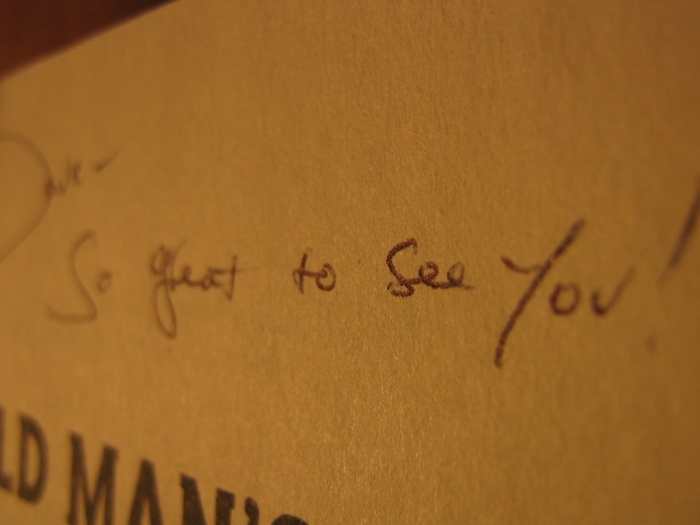 Dave-
So great to see you!
LD MAN'S